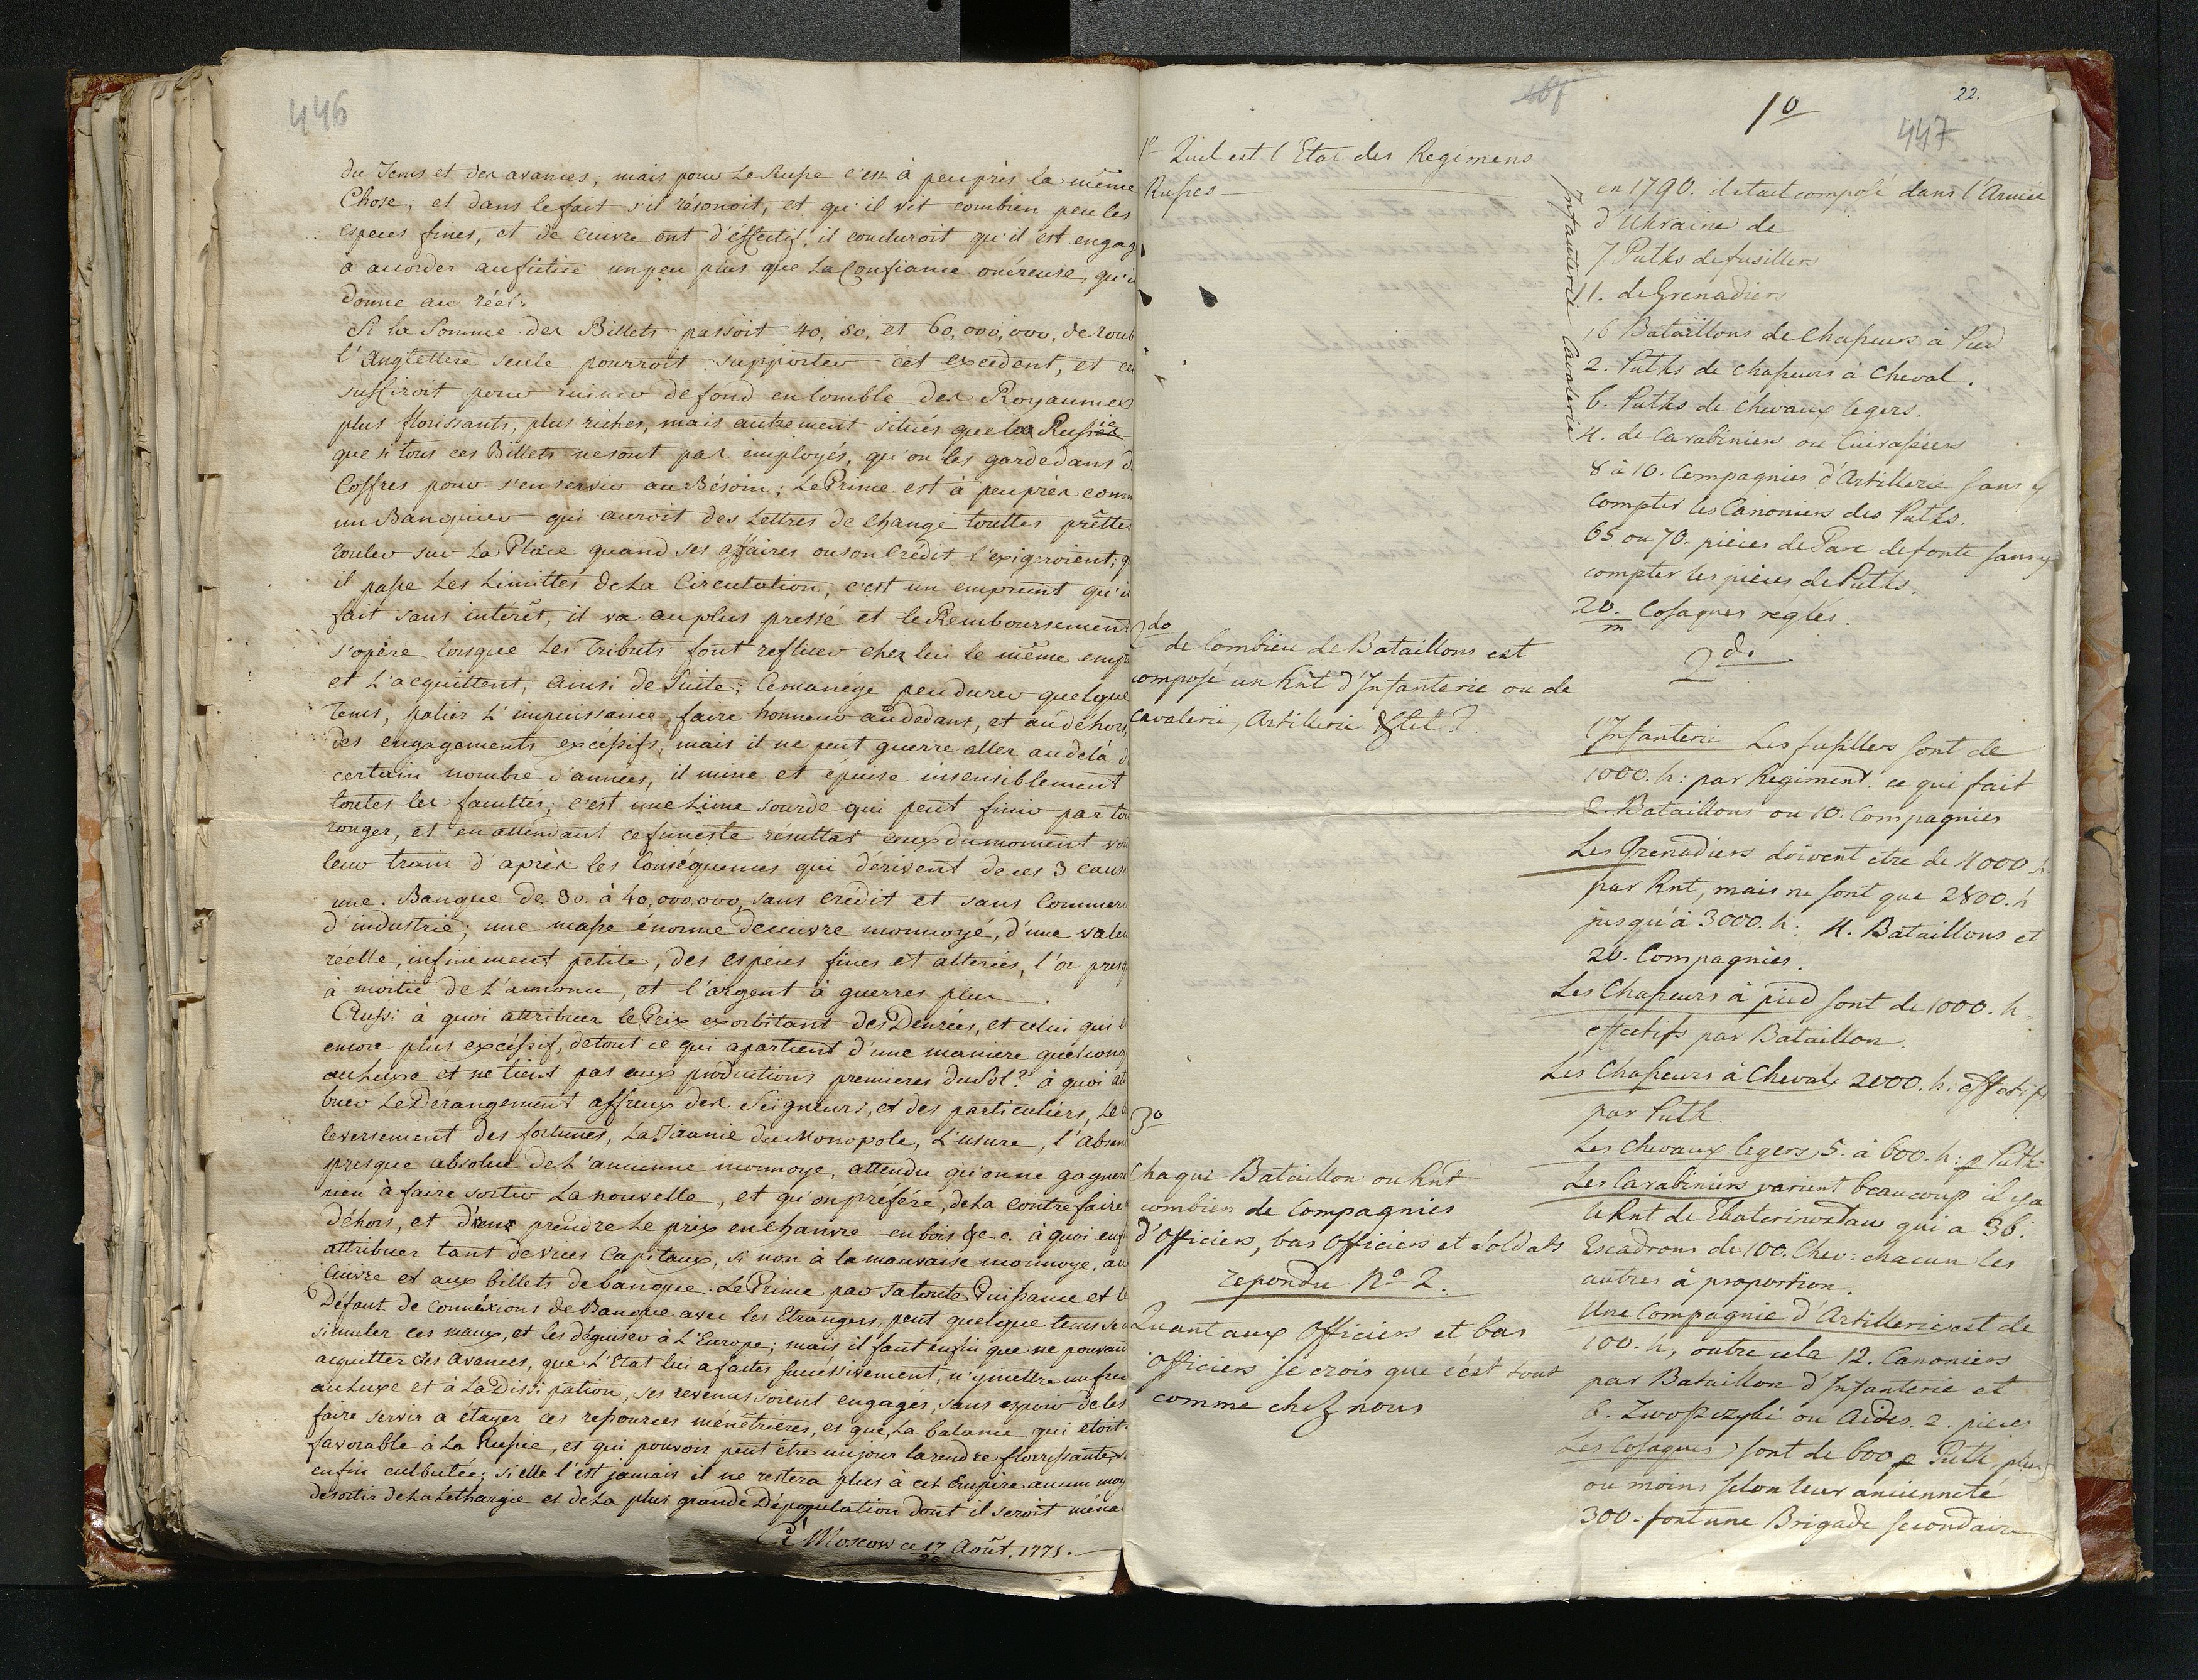 446
du Tems et des avances; mais pour Le Russe c'est à peu près la même
Chose, et dans le fait s'il résonoit, et qu'il vit combien peu les
especes fines, et de cuivre ont d'éffectif, il concluroit qu'il est engag
à accorder au fictice un peu plus que La Confiance onéreuse, qu'i
donne au réel.
Si la Somme des Billets passoit 40, 50, et 60,000,000, de roub
l'Angletterre seule pourroit supporter cet excedent, et ce
suffiroit pour ruiner de fond en comble des Royaumes
plus florissants, plus riches, mais autrement situés que la Russie
que si tous ces Billets ne sont pas employés, qu'on les garde dans d
Coffres pour s'en servir au Bésoin; Le Prince est à peu près comm
un Banquier qui auroit des Lettres de Change touttes prêttes
rouler sur La Place quand ses affaires ou son Crédit l'exigeroient; q
il passe Les Limittes de La Circulation, c'est un emprunt qu'il
fait sans interêt, il va au plus pressé et le Remboursement
s'opère lorsque Les Tributs font refluer chez lui le même emp
et L'acquittent, ainsi de Suite; Ce manége peu durer quelque
Tems, palier L'impuissance, faire honneur au dedans, et au déhors,
des engagaments excéssifs; mais il ne peut guerre aller au delà d
certain nombre d'années, il mine et épuise insensiblement
toutes les facultés; c'est une Lime sourde qui peut finir par tou
ronger, et en attendant ce funeste résultat ceux du moment vo
leur train d'après les Conséquences qui dérivent de ces 3 caus
une Banque de 30. à 40,000.000, sans crédit et sans Commerc
d'industrie; une masse énorme de cuivre monnoyé, d'une vale
réelle, infiniment petite, des espéces fines et alterées, l'or presq
à moitié de L'annonce, et l'argent à guerres plus .
Aussi à quoi attribuer le Prix exorbitant des Denrées, et celui qui l
encore plus excéssif, de tout ce qui apartient d'une maniere quelconq
au Luxe et ne tient pas aux productions premieres du Sol? à quoi at
buer Le Dérangement affreux des Seigneurs, et des particuliers, Le
leversement des fortunes, La Tiranie du Monopole, L'usure, l'absen
presque absolue de L'ancienne monnoye, attendu qu'on ne gagner
rien à faire sortir La nouvelle, et qu'on préféré, de La Contrefaire
déhors, et d'en prendre Le prix en chanvre en bois &c. à quoi enf
attribuer tant de vices Capitaux, si non à la mauvaise monnoye, au
Cuivre et aux billets de banque. Le Prince par sa toute Puissance et l
Défaut de connéxions de Banque avec les Etrangers, peut quelque tems
simuler ces maux, et les déguiser à L'Europe; mais il faut enfin que ne pouvan
acquitter des avances, que L'Etat lui a faites succéssivement, n'y mettre un frei
au Luxe et à La Dissipation, ses revenus soient engagés, sans espoir de les
faire servir a étayer ces ressources, et que La balance qui etoit
favorable à La Russie, et qui pouvoir peut être un jour la rendre florrissante,
enfin culbutée; si elle l'est jamais il ne restera plus à cet Empire aucun moy
de sortir de La Lethargie et de La plus grande Dépopulation dont il seroit ména
A Moscow ce 17/28 Août. 1775.
447
22.
1º
1º Quel est l'Etat des Regimens
Russes
Infanterie Cavalerie
en 1790. il etait composé dans l'Armée
d'Ukraine de
7 Pulks de fusilliers
4. de Grenadiers
16 Bataillons de Chasseurs à Pied
2. Pulks de Chasseurs à Cheval.
6. Pulks de Chevaux legers.
4. de Carabiniers ou Cuirassiers
8 à 10. Compagnies d'Artillerie sans y
compter les Canoniers des Pulks.
65 ou 70. pièces de Parc de fonte sans y
compter les pièces de Pulks.
20/m Cosaques réglés.
2do
de Combien de Bataillons est
composé un Rnt d'Infanterie ou de
Cavalerie, Artillerie &
2do
l'Infanterie Les fusilliers sont de
1000. h: par Regiment ce qui fait
2. Bataillons ou 10. Compagnies
Les Grenadiers doivent etre de 4000 h
par Rnt, mais ne sont que 2800. h
jusqu'à 3000. h. 4. Bataillons et
20. Compagnies.
Les Chasseurs à pied sont de 1000. h
effectifs par Bataillon.
Les Chasseurs à Cheval 2000. h. effectifs
par Pulk.
Les Chevaux legers, 5. à 600. h: p Pulk
Les Carabiniers varient beaucoup il y a
le Rnt de Ekaterinoslaw qui a 36.
Escadrons de 100. Chev: chacun les
autres à proportion.
Une Compagnie d'Artillerie est de
100. h, outre cela 12. Canoniers
par Bataillon d'Infanterie et
6. ou Aides. 2. pieces
Les Cosaques sont de 600 p Pulk, plus
ou moins selon leur ancienneté
300. font une Brigade secondaire
3º
Chaque Bataillon ou Rnt
combien de Compagnies
d'Officiers, bas Officiers et Soldats
repondu Nº 2.
Quant aux Officiers et bas
Officiers je crois que c'est tout
comme chez nous